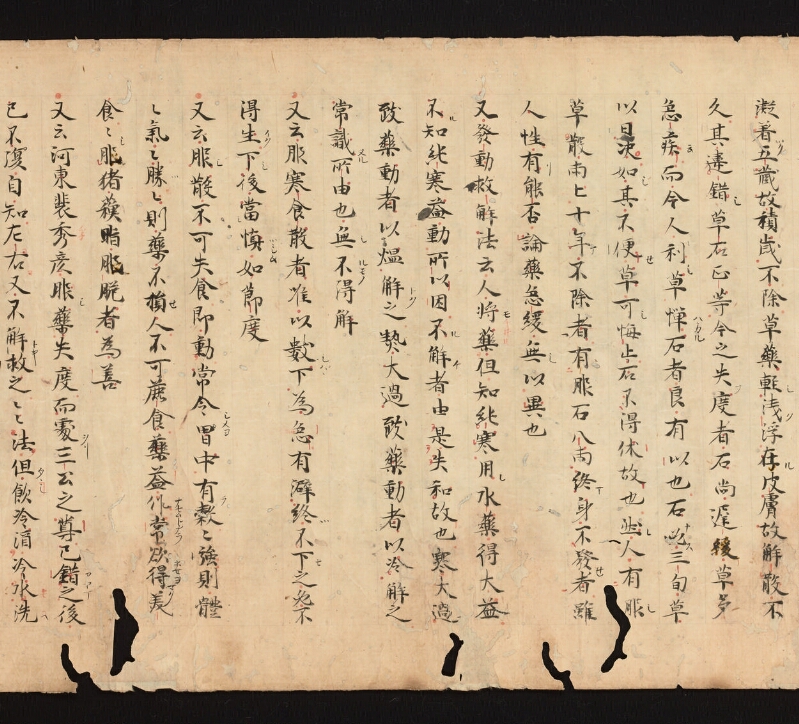 凝着五藏故積歳不除草藥軽浅浮在皮膚故解散不
久其違錯草石正等令之失度者石尚遅緩草多
急疾而令人利草憚石者良有以也石必三旬草
以日決如其不便草可悔止石不得休故也然人有服
草散両匕十年不除者有服石八両終身不發者雖
人性有能否論藥急緩無以異也
又發動救解法云人將藥但知純寒用水藥得大益
不知純寒益動所以困不解者由是失和故也寒大過
致藥動者以熅解之熱大過致藥動者以冷解之
常識所由也無不得解
又云服寒食散者唯以數下為急有澼終不下之必不
得生下後當慎如節度
又云服散不可失食即動常令胃中有穀〻強則體
〻氣〻勝〻則藥不損人不可蔬食藥益作常欲得羙
食〻服猪𦢊脂服脆者為善
又云河東裴秀彦服藥失度而處三公之尊已錯之後
已不復自知左右又不解救之〻法但飲冷涓冷水洗